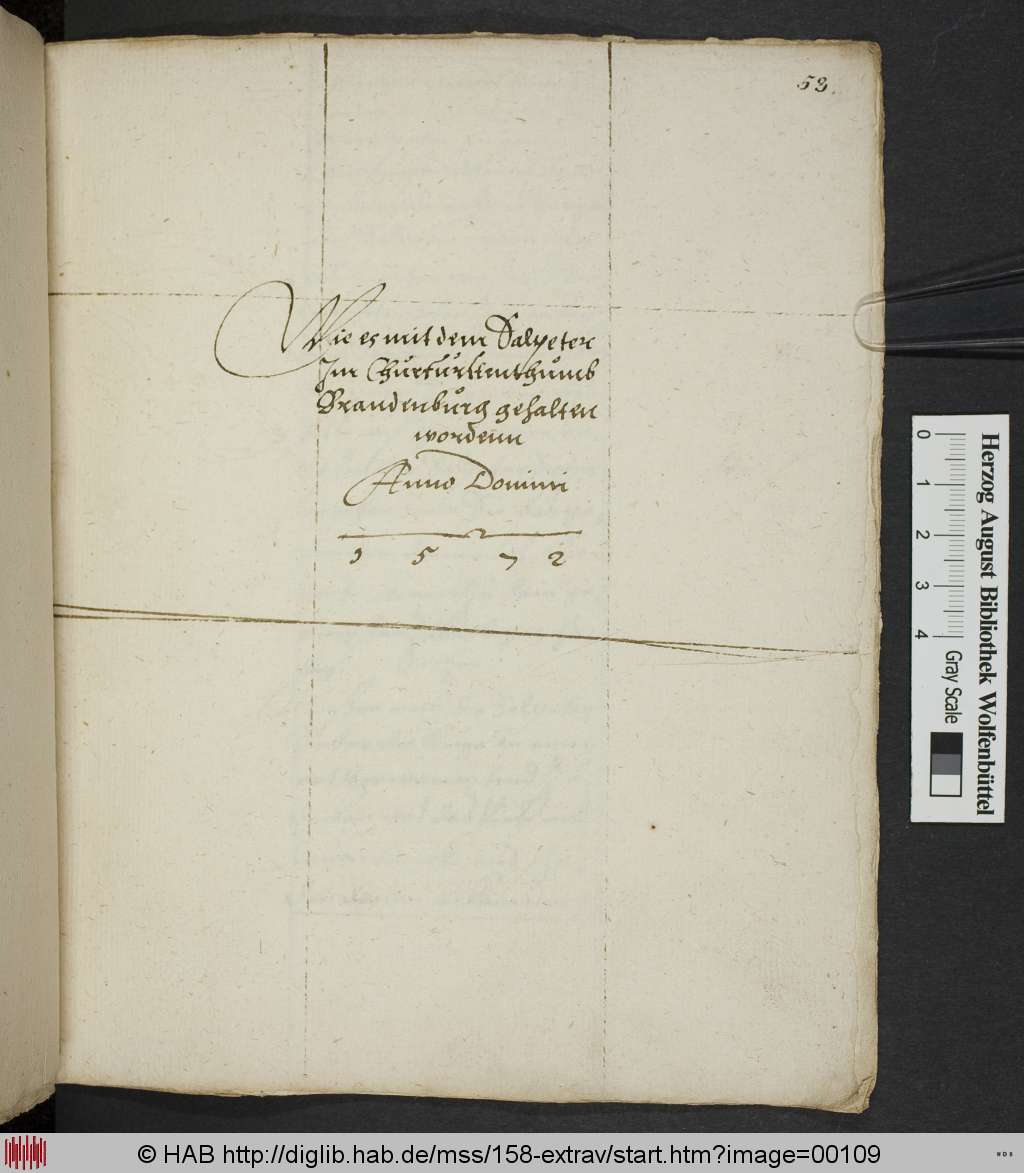 53.
Wie es mit dem Salpeter
Im Churfürstenthumb
Brandenburg gehalten
wordenn
Anno Domini
1 5 7 2
Herzog August Bibliothek Wolfenbüttel
0 1 2 3 4 Gray Scale
© HAB http://diglib.hab.de/mss/158-extrav/start.htm?image=00109